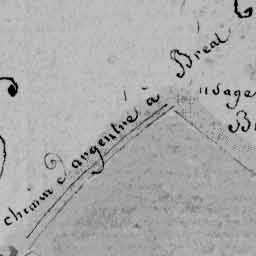 chemin d'argentré à Bréal
usage